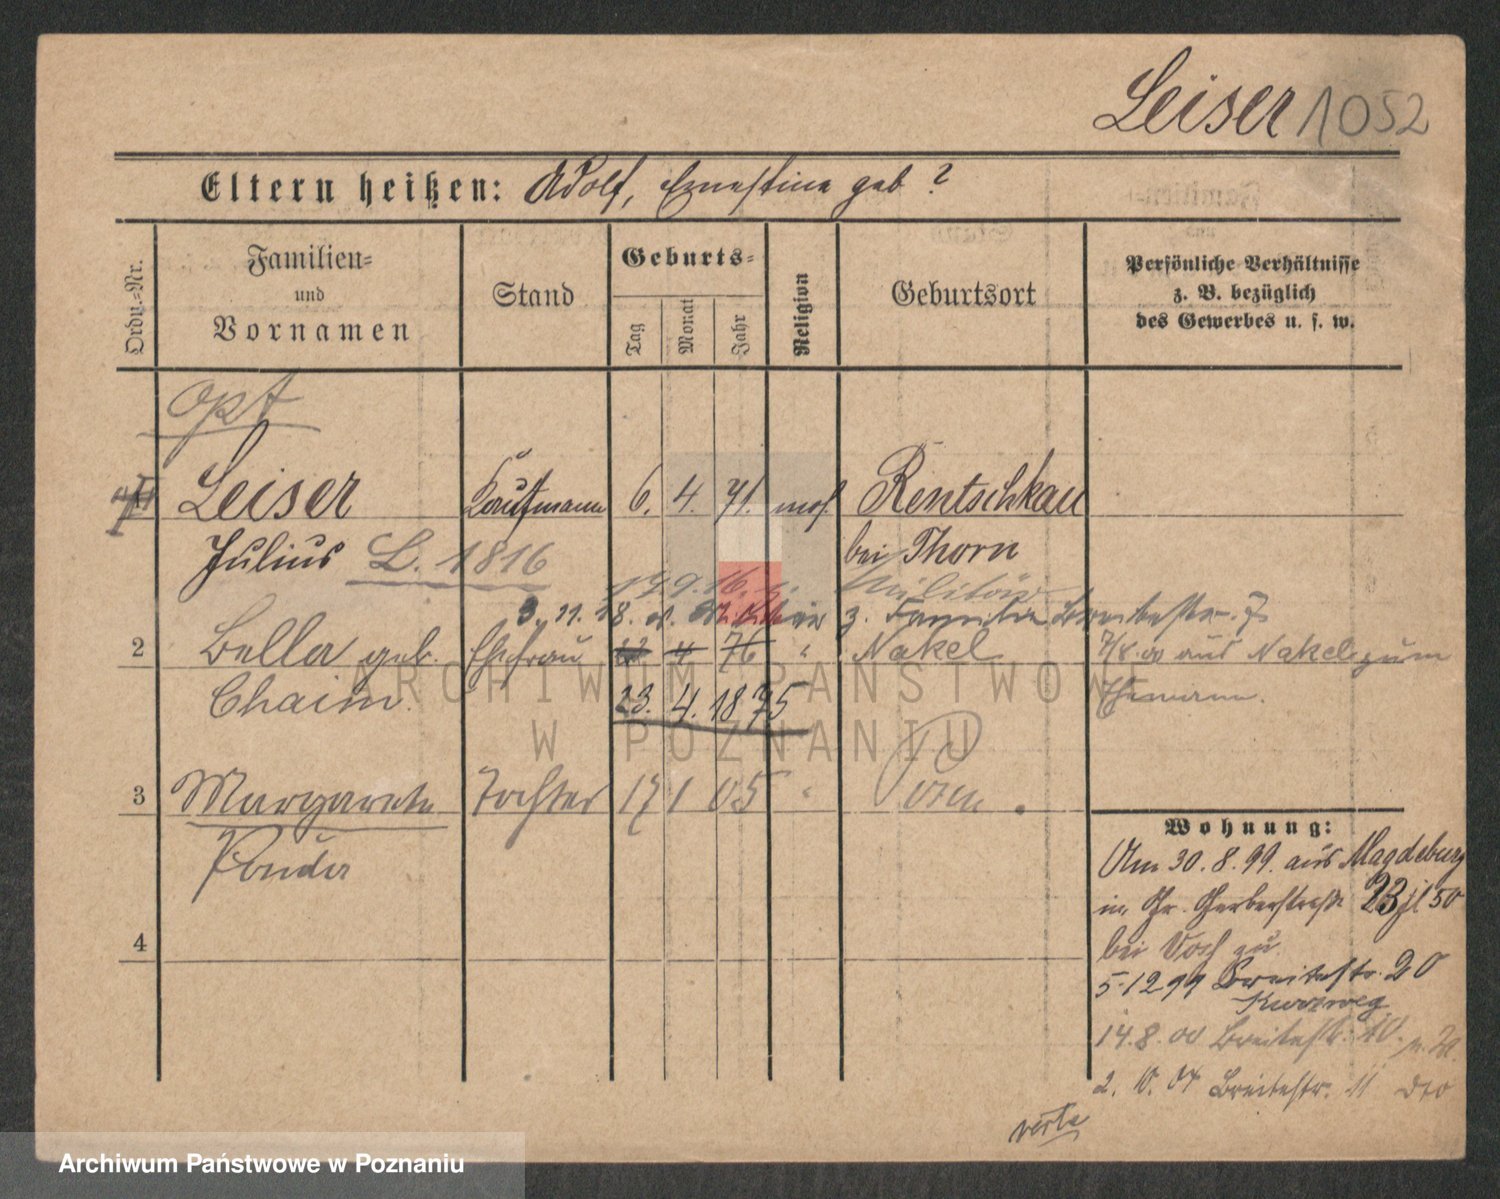 Leiser 1052
Eltern heißen: Adolf, Ernestine geb ?
Ordn.-Nr.
Familien-
und
Vornamen
Stand
Geburts-
Tag
Monat
Jahr
Religion
Geburtsort
Persönliche Verhältnisse
z. B. bezüglich
des Gewerbes u. s. w.
opt
Leiser Kaufmann 6. 4. 71. mos. Rentschkau
Julius L. 1816 bei Thorn
19.9.16. z. Militär
3. 11. 18. v. Militär z. Familie Breitestr. 7
2 Bella geb. Ehefrau 23 4 76 " Nakel 7/8.00 aus Nakel zum
Chaim. 23. 4. 1875 Ehemann.
3 Margarete Tochter 17 1 05 " Posen.
4
Wohnung:
Am 30.8.99. aus Magdeburg
in Gr. Gerberstraße 23 jl 50
bei Vosz zu
5 12 99 Breitestr. 20
14.8.00 Breitestr. 10.
2. 10. 04 Breitestr. 11 dto
verte
ARCHIWUM PAŃSTWOW
W POZNANIU
Archiwum Państwowe w Poznaniu